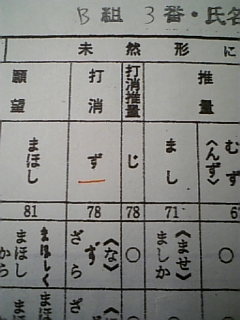 B組 3番・氏名
未然形に
推量
打消推量
打消
願望
むず〈んず〉
まし
じ
ず
まほし
6
71
78
78
81
○
〈ませ〉
ましか
○
〈な〉
ず
ざら
まほしく
まほし
から